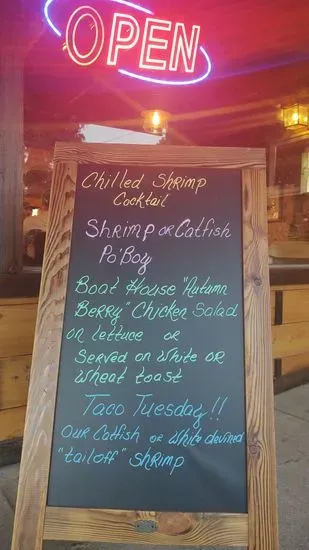 OPEN
Chilled Shrimp
Cocktail
Shrimp or Catfish
Po'Boy
Boat House "Autumn
Berry" Chicken Salad
on lettuce or
Served on White or
Wheat toast
Taco Tuesday!!
Our Catfish or White devined
"tailoff" Shrimp